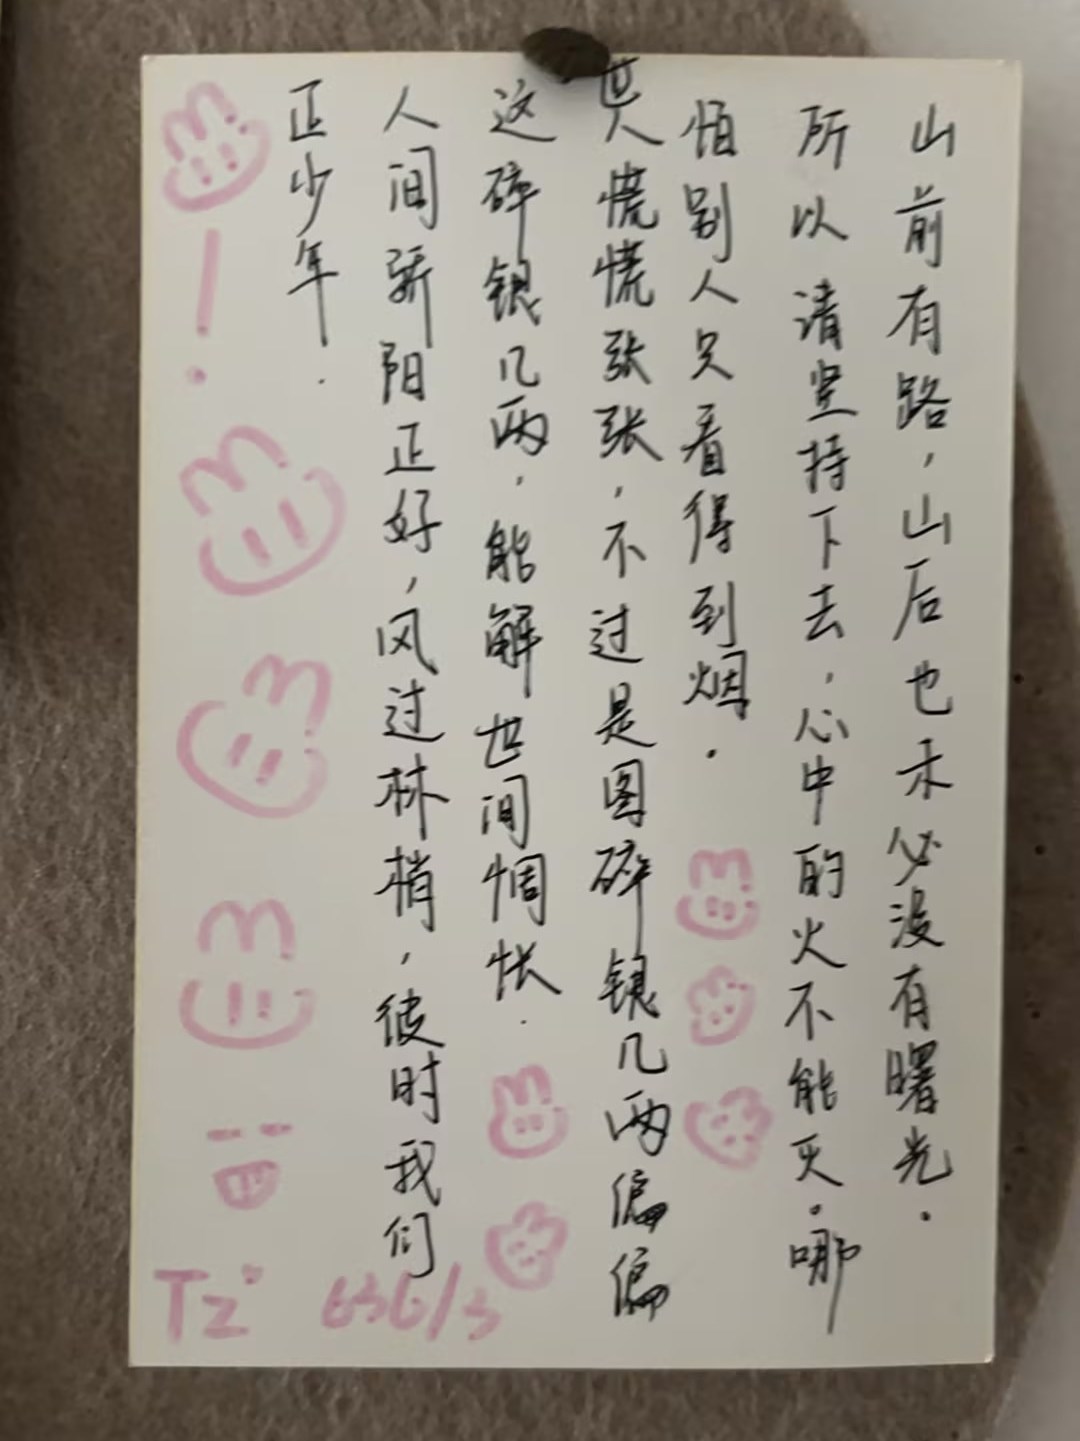 山前有路，山后也未必没有曙光.
所以请坚持下去，心中的火不能灭。哪
怕别人只看得到烟.
世人慌慌张张，不过是图碎银几两偏偏
这碎银几两，能解世间惆怅.
人间骄阳正好，风过林梢，彼时我们
正少年.
!
Tz° 636/3